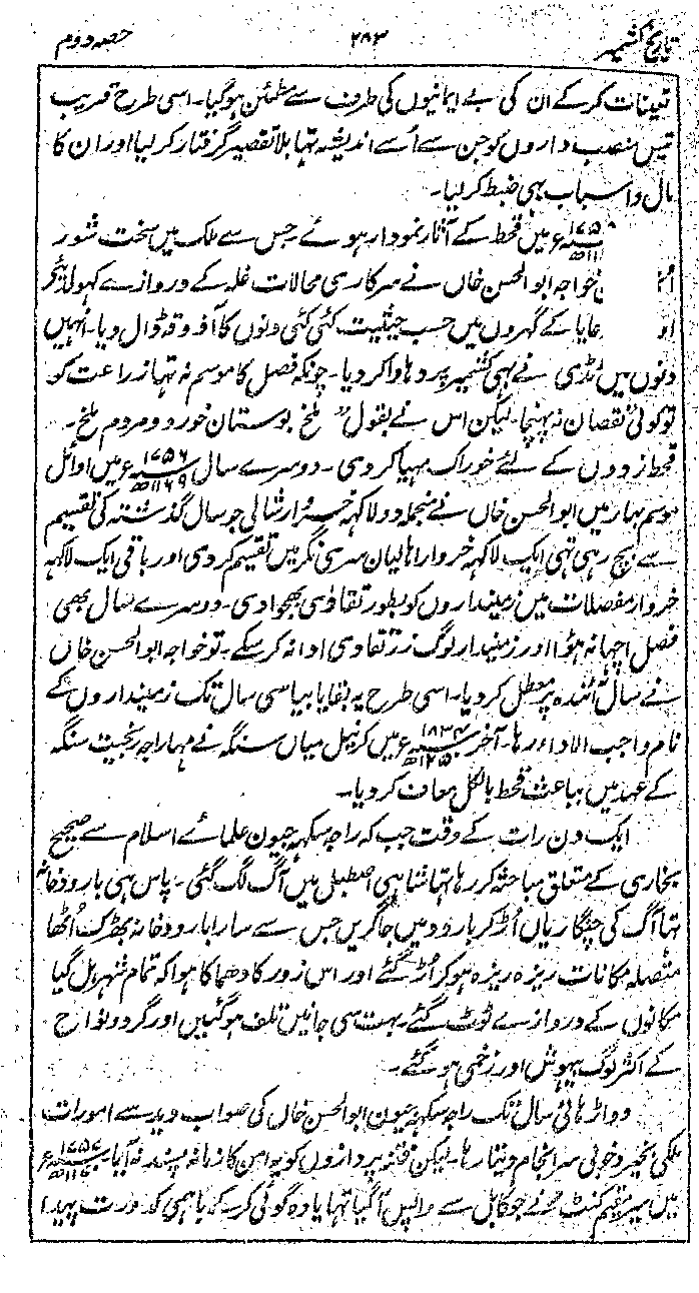 تاریخ کشمیر ۲۸۳ حصہ دوم
تعینات کرکے ان کی بے ایمانیوں کی طرف سے مطمئن ہوگیا۔ اسی طرح قریب
تیس منصب داروں کو جن سے اُسے اندیشہ تہا بلا تقصیر گرفتار کرلیا اور ان کا
مال و اسباب بہی ضبط کرلیا۔
میں قحط کے آثار نمودار ہوئے جس سے ملک میں سخت شور
خواجہ ابوالحسن خاں نے سرکاری محالات غلہ کے دروازے کہولدیئے
عایا کے گہروں میں حسب حیثیت کئی کئی دنوں کا آذوقہ ڈال دیا۔ انہیں
دنوں میں ٹڈی نے بہی کشمیر پر دہاوا کردیا۔ چونکہ فصل کا موسم نہ تہا زراعت کو
تو کوئی نقصان نہ پہنچا۔ لیکن اس نے بقول "ملخ بوستان خورد و مردم ملخ۔
قحط زدوں کے لئے خوراک مہیا کردی۔ دوسرے سال ۱۷۵۶ء ۱۱۶۹ھ میں اوائل
موسم بہار میں ابوالحسن خاں نے منجملہ دو لاکہہ خروار شالی جو سال گذشتہ کی تقسیم
سے بچ رہی تہی ایک لاکہہ خروار اہالیان سری نگر میں تقسیم کردی اور باقی ایک لاکہہ
خروار مفصلات میں زمینداروں کو بطور تقاوی بھجوا دی۔ دوسرے سال بھی
فصل اچہا نہ ہؤا اور زمیندار لوگ زر تقاوی ادا نہ کرسکے۔ تو خواجہ ابوالحسن خاں
نے سال آئندہ پر معطل کردیا۔ اسی طرح یہ بقایا بیاسی سال تک زمینداروں کے
نام واجب الادا رہا۔ آخر ۱۸۳۴ء ۱۲۵۰ھ میں کرنیل میاں سنگہ نے مہاراجہ رنجیت سنگہ
کے عہد میں بباعث قحط بالکل معاف کردیا۔
ایک دن رات کے وقت جب کہ راجہ سکہہ جیون علمائے اسلام سے صحیح
بخاری کے متعلق مباحثہ کر رہا تہا شاہی اصطبل میں آگ لگ گئی۔ پاس ہی بارودخانہ
تہا آگ کی چنگاریاں اُڑ کر بارود میں جاگریں جس سے سارا بارودخانہ بھڑک اُٹھا
متصلہ مکانات ریزہ ریزہ ہوکر اُڑ گئے اور اس زور کا دھماکا ہوا کہ تمام شہر ہل گیا
مکانوں کے دروازے ٹوٹ گئے۔ بہت سی جانیں تلف ہوگئیں اور گردونواح
کے اکثر لوگ بیہوش اور زخمی ہوگئے۔
دو اڑھائی سال تک راجہ سکہہ جیون ابوالحسن خاں کی صواب دید سے امورات
ملکی بخیر و خوبی سرانجام دیتا رہا۔ لیکن فتنہ پردازوں کو یہ امن کا زمانہ پسند نہ آیا۔
میں میر مقیم کنٹ نے جو کابل سے واپس آگیا تہا یاوہ گوئی کرکے باہمی کدورت پیدا